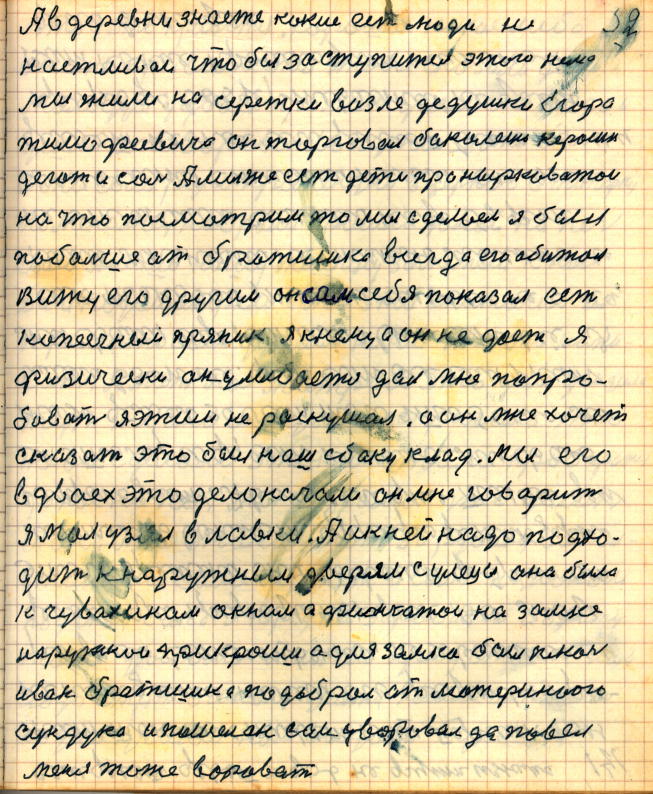 А в деревни знаете какие ест люди не 52
настливаи что бы заступится этого нема
мы жили на серетки возле дедушки Егора
тимофеевича он торговал бакалеш керошн
дегот и сол А мы же ест дети проныроватои
на что посмотрим то мы сделаем я был
поболше от братишика всегда его обижал
вижу его другим он сам себя показал ест
копеечнеи пряник я к нему а он не дает я
физически он улибается дал мне попро-
боват я этим не роскушал. а он мне хочет
сказат это был наш с боку клад. мы его
в двоех это дело начали он мне говарит
я мол узял в лавки. А и к ней надо подхо-
дит к наружным дверям с улецы она была
к чувахинам окнам а фиончатои на замке
наружнои прикроши а для замка был ключ
иван братишика подобрал от материного
сундука и пошел он сам уворовал да повел
меня тоже вороват